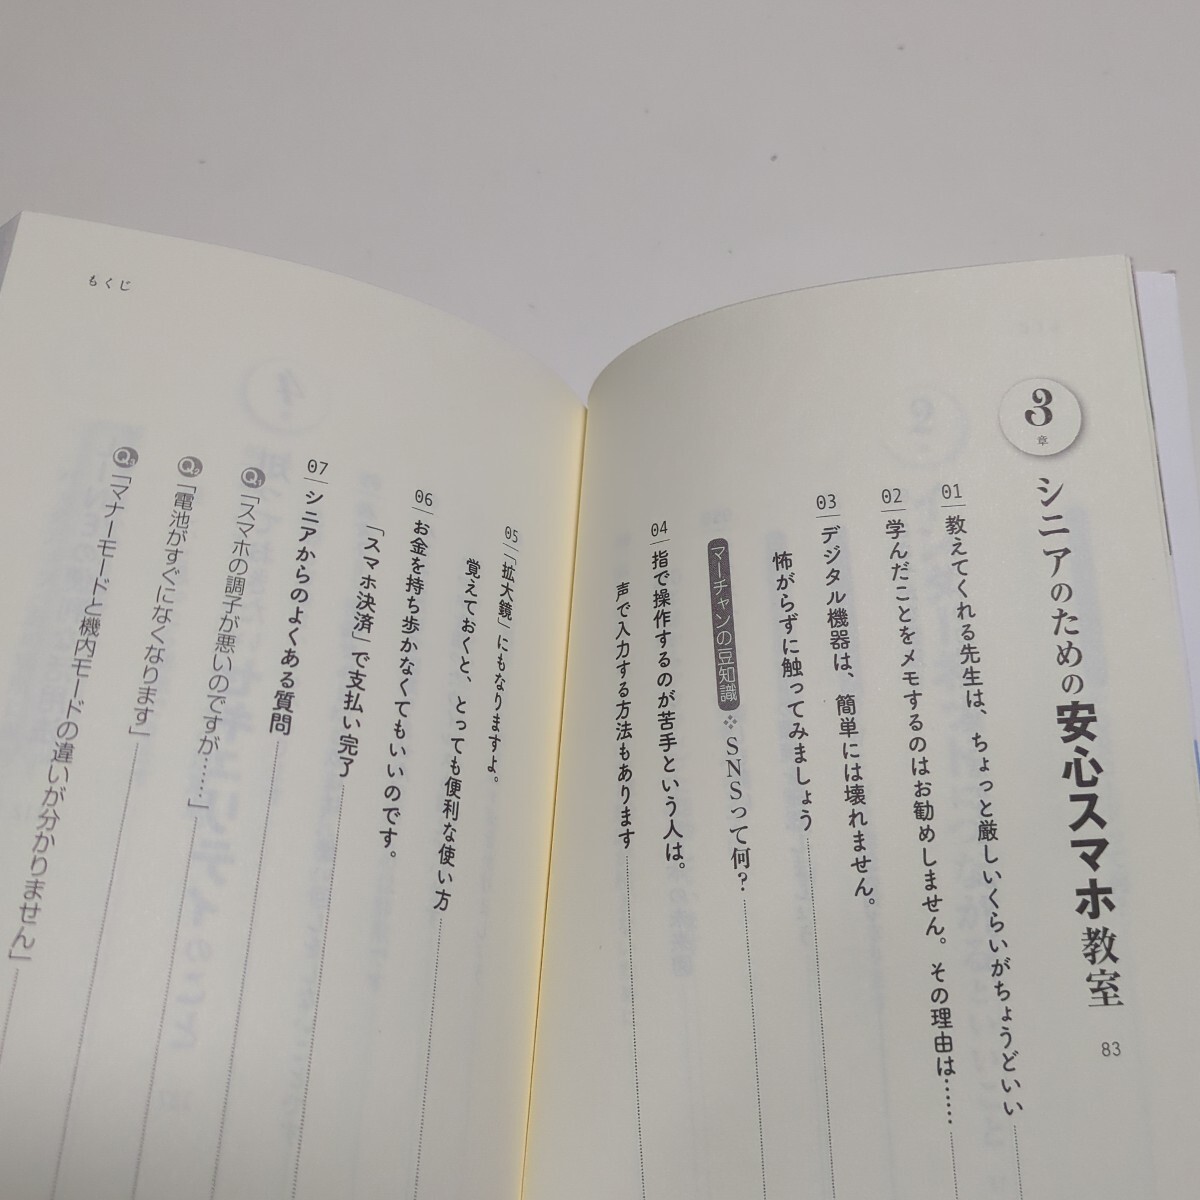 3章 シニアのための安心スマホ教室 83
01 教えてくれる先生は、ちょっと厳しいくらいがちょうどいい
02 学んだことをメモするのはお勧めしません。その理由は……
03 デジタル機器は、簡単には壊れません。
怖がらずに触ってみましょう
マーチャンの豆知識 ❖ SNSって何？
04 指で操作するのが苦手という人は。
声で入力する方法もあります
もくじ
05 「拡大鏡」にもなりますよ。
覚えておくと、とっても便利な使い方
06 お金を持ち歩かなくてもいいのです。
「スマホ決済」で支払い完了
07 シニアからのよくある質問
Q1 「スマホの調子が悪いのですが……」
Q2 「電池がすぐになくなります」
Q3 「マナーモードと機内モードの違いが分かりません」